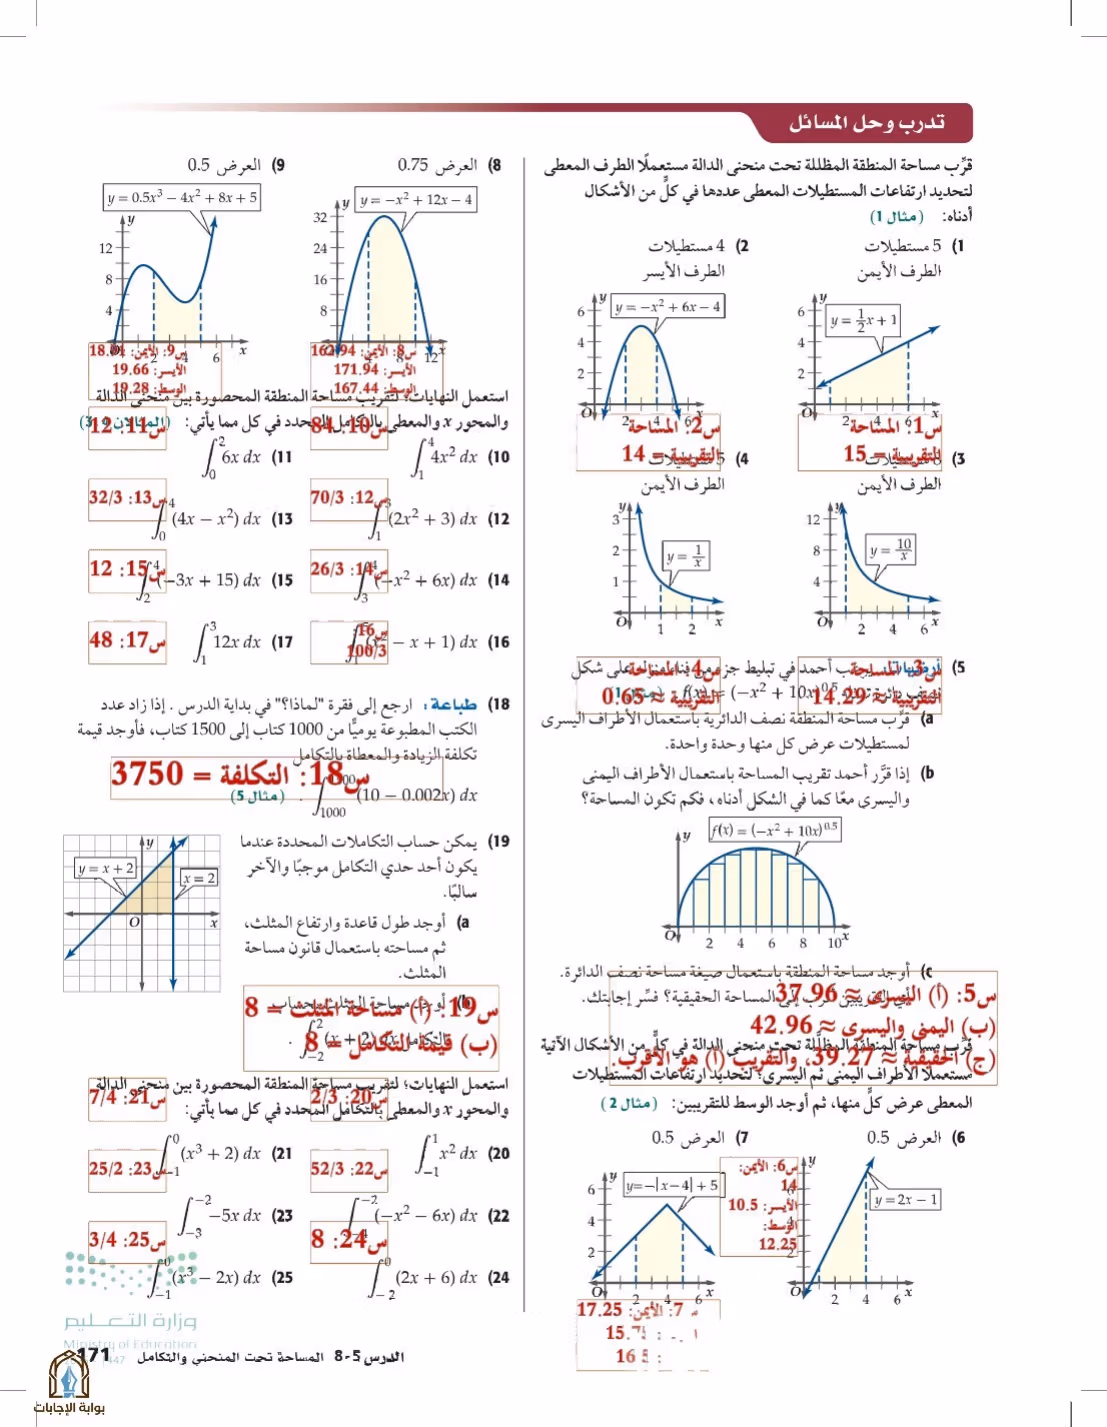 تدرب وحل المسائل
قرِّب مساحة المنطقة المظللة تحت منحنى الدالة مستعملًا الطرف المعطى
لتحديد ارتفاعات المستطيلات المعطى عددها في كلٍّ من الأشكال
أدناه: (مثال 1)
(1 5 مستطيلات
الطرف الأيمن
(2 4 مستطيلات
الطرف الأيسر
y = 1/2 x + 1
y = −x² + 6x − 4
س1: المساحة
التقريبية = 15
س2: المساحة
التقريبية = 14
(3
الطرف الأيمن
(4 5 مستطيلات
الطرف الأيمن
y = 10/x
y = 1/x
س3: المساحة
التقريبية ≈ 14.29
س4: المساحة
التقريبية ≈ 0.65
(5
f(x) = (−x² + 10x)^0.5
(a قرِّب مساحة المنطقة نصف الدائرية باستعمال الأطراف اليسرى
لمستطيلات عرض كل منها وحدة واحدة.
(b إذا قرَّر أحمد تقريب المساحة باستعمال الأطراف اليمنى
واليسرى معًا كما في الشكل أدناه، فكم تكون المساحة؟
f(x) = (−x² + 10x)^0.5
(c أوجد مساحة المنطقة باستعمال صيغة مساحة نصف الدائرة.
إلى المساحة الحقيقية؟ فسِّر إجابتك.
س5: (أ) اليسرى ≈ 37.96
(ب) اليمنى واليسرى ≈ 42.96
(ج) الحقيقية ≈ 39.27، والتقريب (أ) هو الأقرب.
قرِّب مساحة المنطقة المظلَّلة تحت منحنى الدالة في كلٍّ من الأشكال الآتية
مستعملًا الأطراف اليمنى ثم اليسرى؛ لتحديد ارتفاعات المستطيلات
المعطى عرض كلٍّ منها، ثم أوجد الوسط للتقريبين: (مثال 2)
(6 العرض 0.5
(7 العرض 0.5
y = 2x − 1
y=−|x−4|+5
س6: الأيمن:
14
الأيسر: 10.5
الوسط:
12.25
7: الأيمن: 17.25
(8 العرض 0.75
(9 العرض 0.5
y = −x² + 12x − 4
y = 0.5x³ − 4x² + 8x + 5
س8: الأيمن: 162.94
الأيسر: 171.94
الوسط: 167.44
س9: الأيمن:
الأيسر: 19.66
الوسط: 19.28
استعمل النهايات؛ لتقريب مساحة المنطقة المحصورة بين منحنى الدالة
والمحور x والمعطى بالتكامل المحدد في كل مما يأتي:
س10: 84
س11: 12
(10 ∫₁⁴ 4x² dx
(11 ∫₀² 6x dx
س12: 70/3
س13: 32/3
(12 ∫₁³ (2x² + 3) dx
(13 ∫₀⁴ (4x − x²) dx
س14: 26/3
س15: 12
(14 ∫₃⁴ (−x² + 6x) dx
(15 ∫₂⁴ (−3x + 15) dx
س16
100/3
س17: 48
(16 − x + 1) dx
(17 ∫₁³ 12x dx
(18 طباعة: ارجع إلى فقرة "لماذا؟" في بداية الدرس. إذا زاد عدد
الكتب المطبوعة يوميًّا من 1000 كتاب إلى 1500 كتاب، فأوجد قيمة
تكلفة الزيادة والمعطاة بالتكامل
س18: التكلفة = 3750
∫₁₀₀₀ (10 − 0.002x) dx . (مثال 5)
(19 يمكن حساب التكاملات المحددة عندما
يكون أحد حدي التكامل موجبًا والآخر
سالبًا.
y = x + 2
x = 2
(a أوجد طول قاعدة وارتفاع المثلث،
ثم مساحته باستعمال قانون مساحة
المثلث.
(b أوجد مساحة المثلث بحساب
التكامل ∫₋₂² (x + 2) dx .
س19: (أ) مساحة المثلث = 8
(ب) قيمة التكامل = 8
استعمل النهايات؛ لتقريب مساحة المنطقة المحصورة بين منحنى الدالة
والمحور x والمعطى بالتكامل المحدد في كل مما يأتي:
س20: 2/3
س21: 7/4
(20 ∫₋₁¹ x² dx
(21 ∫₋₁⁰ (x³ + 2) dx
س22: 52/3
س23: 25/2
(22 ∫₋₄⁻² (−x² − 6x) dx
(23 ∫₋₃⁻² −5x dx
س24: 8
س25: 3/4
(24 ∫₋₂⁰ (2x + 6) dx
(25 ∫₋₁⁰ (x³ − 2x) dx
وزارة التعليم
Ministry of Education
الدرس 5-8 المساحة تحت المنحنى والتكامل 171
بوابة الإجابات